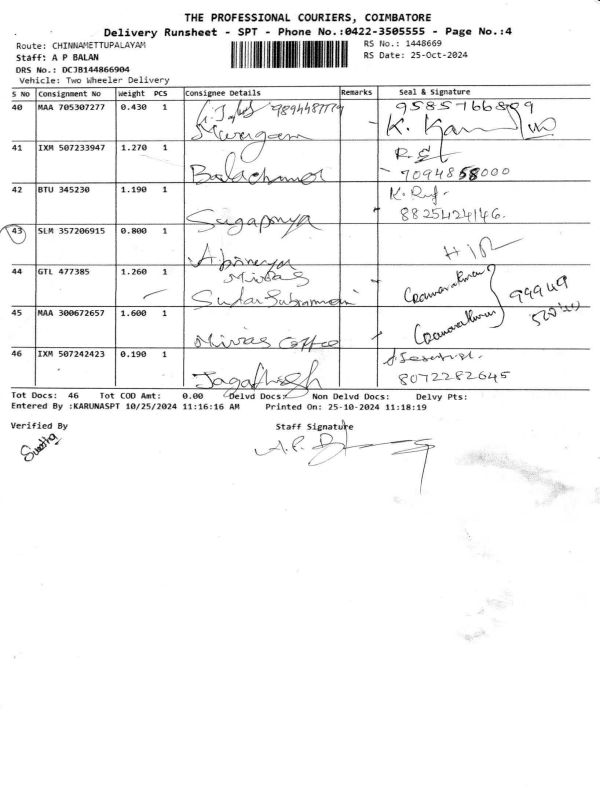 THE PROFESSIONAL COURIERS, COIMBATORE
Delivery Runsheet - SPT - Phone No.:0422-3505555 - Page No.:4
Route: CHINNAMETTUPALAYAM
RS No.: 1448669
Staff: A P BALAN
RS Date: 25-Oct-2024
DRS No.: DCJB144866904
Vehicle: Two Wheeler Delivery
S No Consignment No Weight PCS Consignee Details Remarks Seal & Signature
40 MAA 705307277 0.430 1 9585766809
Murugam K.
41 IXM 507233947 1.270 1
Balachander 7094858000
42 BTU 345230 1.190 1
Sugapriya 8825424146.
43 SLM 357206915 0.800 1
Abineya
44 GTL 477385 1.260 1 Mivas
99949
45 MAA 300672657 1.600 1
Mivas Coffee
46 IXM 507242423 0.190 1
Jagathesh 8072282645
Tot Docs: 46 Tot COD Amt: 0.00 Delvd Docs: Non Delvd Docs: Delvy Pts:
Entered By :KARUNASPT 10/25/2024 11:16:16 AM Printed On: 25-10-2024 11:18:19
Verified By Staff Signature
A.P.